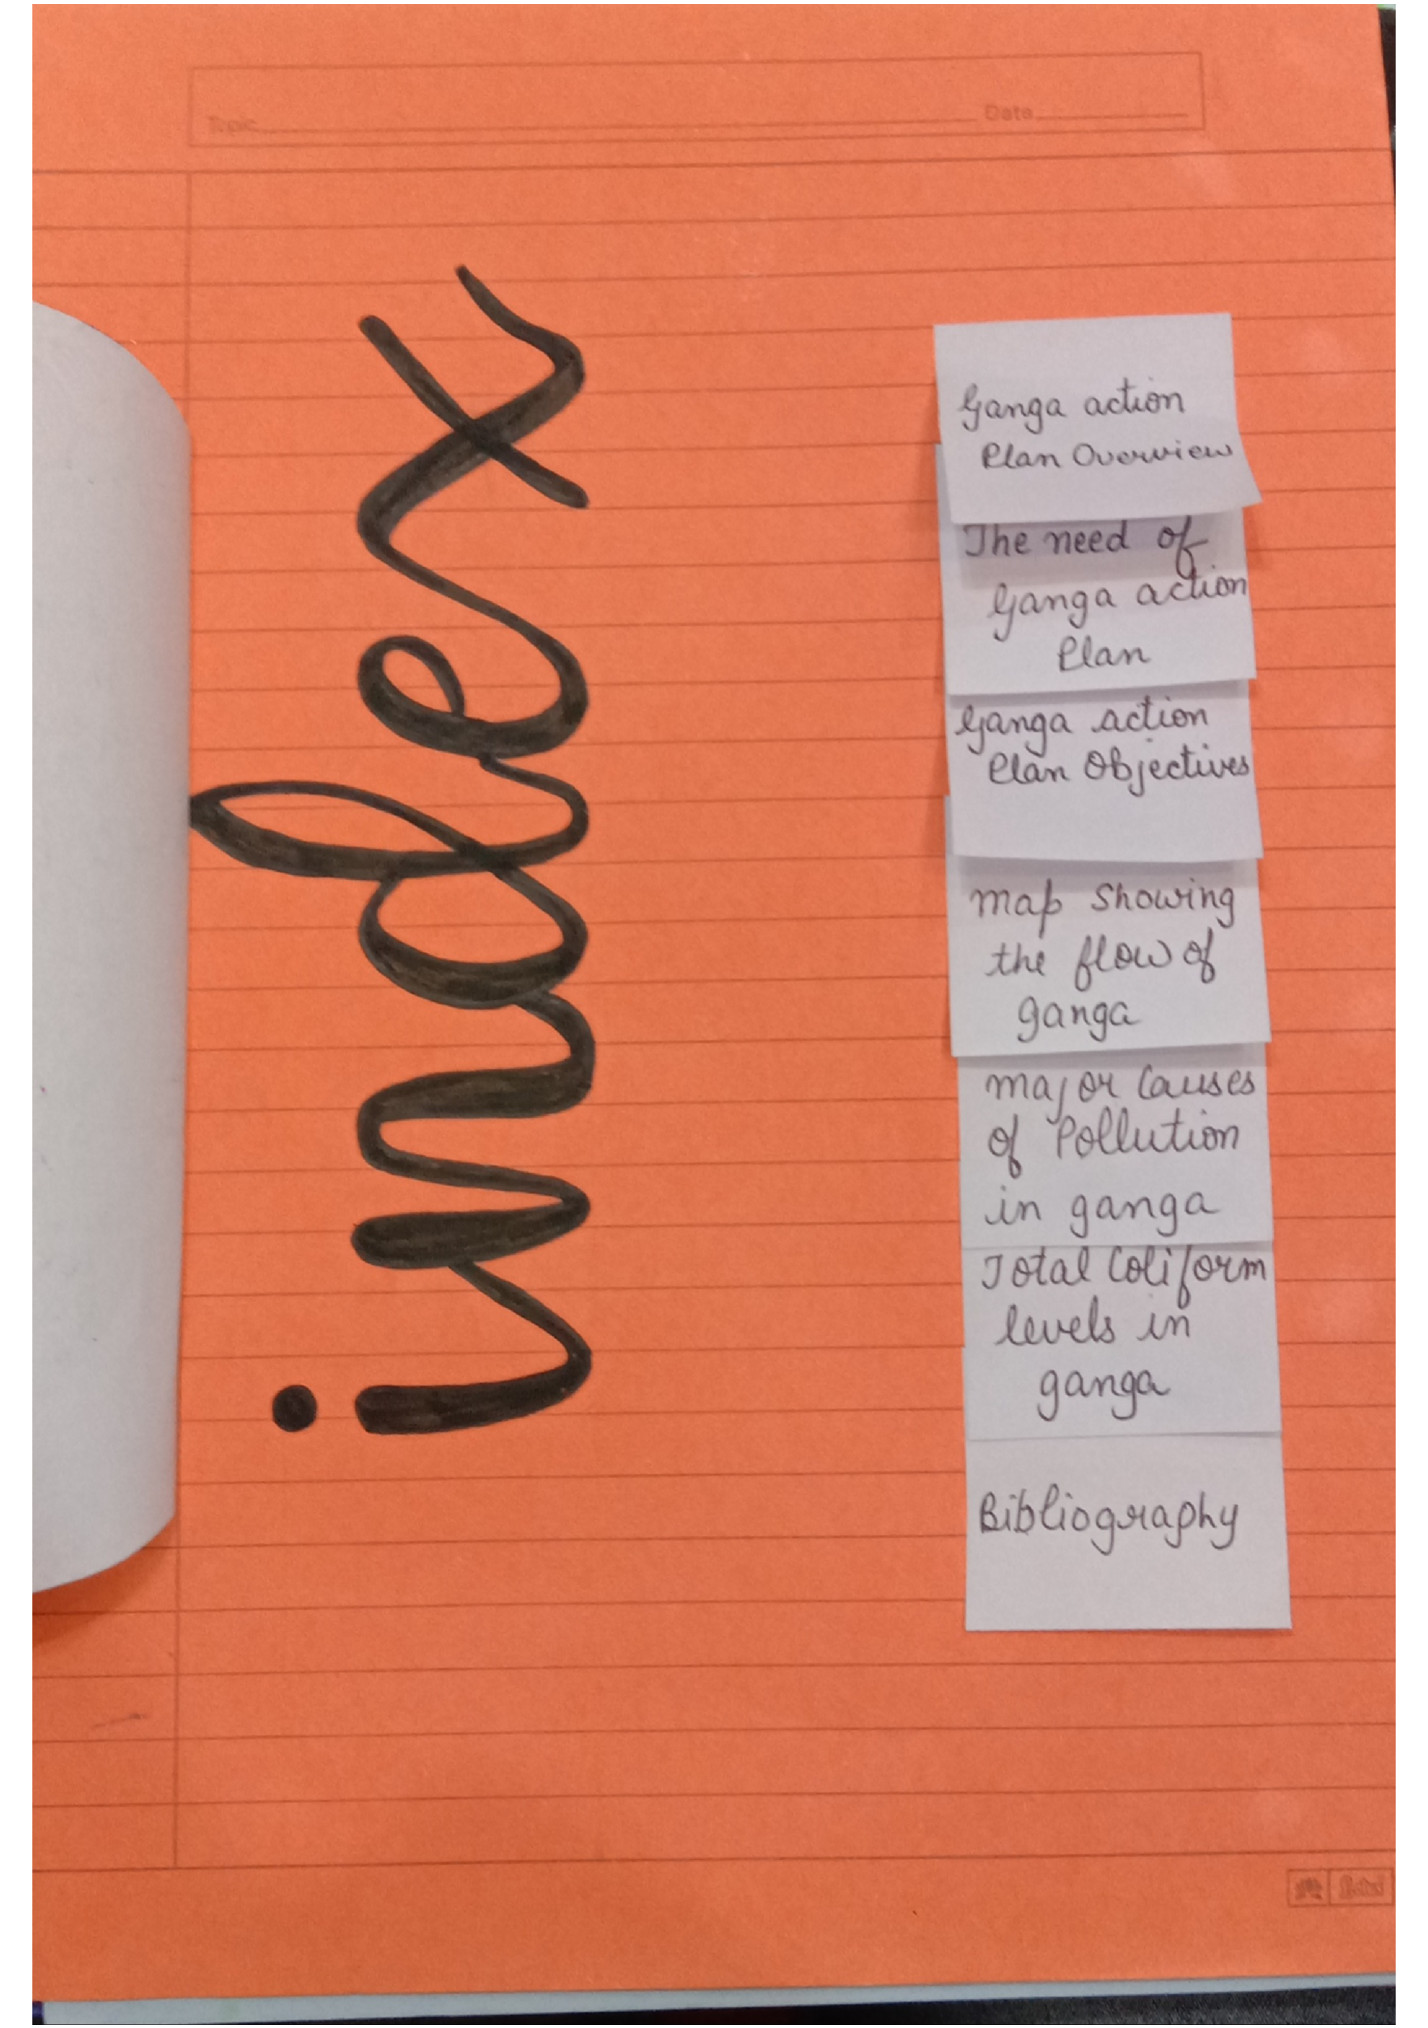 Topic
Date
index
Ganga action
Plan Overview
The need of
Ganga action
Plan
Ganga action
Plan Objectives
map showing
the flow of
ganga
major Causes
of Pollution
in ganga
Total Coliform
levels in
ganga
Bibliography